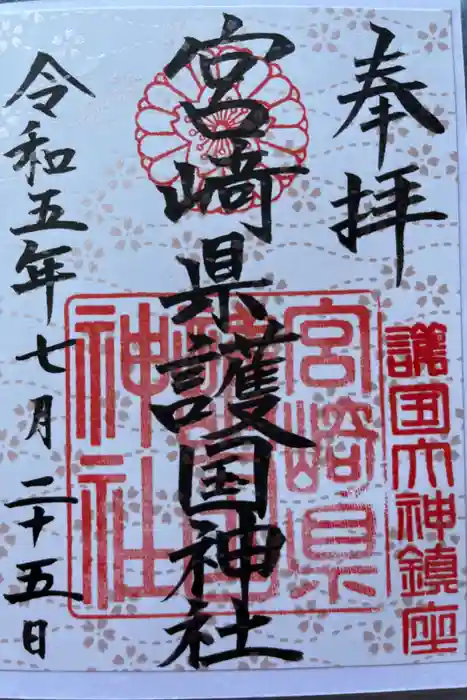 奉拝
護国大神鎮座
宮崎県護国神社
宮崎県
護国
神社
令和五年七月二十五日